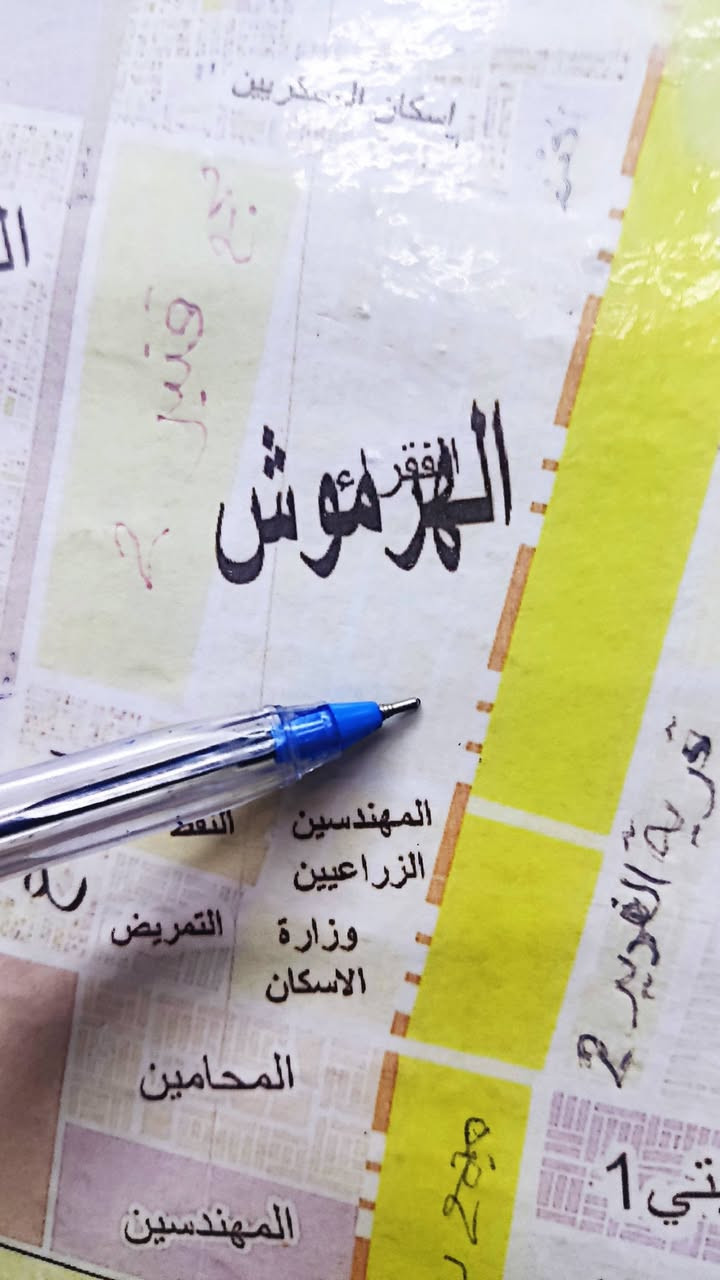 إسكان العسكريين
ال
قنبر
2
الهرموش
الفقراء
المهندسين
الزراعيين
النفط
وزارة
الاسكان
التمريض
قرية الغدير 2
المحامين
المهندسين
تي 1